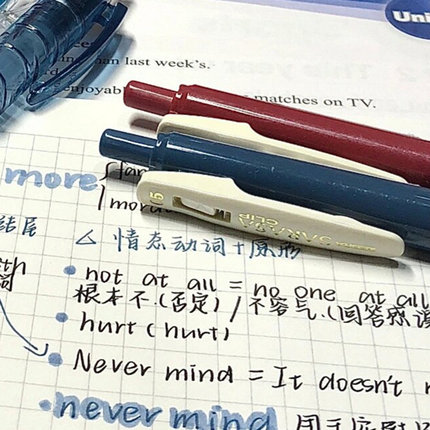 Uni
than last week's.
matches on TV.
more
△ 情态动词+原形
结尾
0.5
SARASA
CLIP
not at all = no one at all
根本不.(否定) / 不客气.(回答感谢
hurt (hurt)
Never mind = It doesn't
never mind 用于